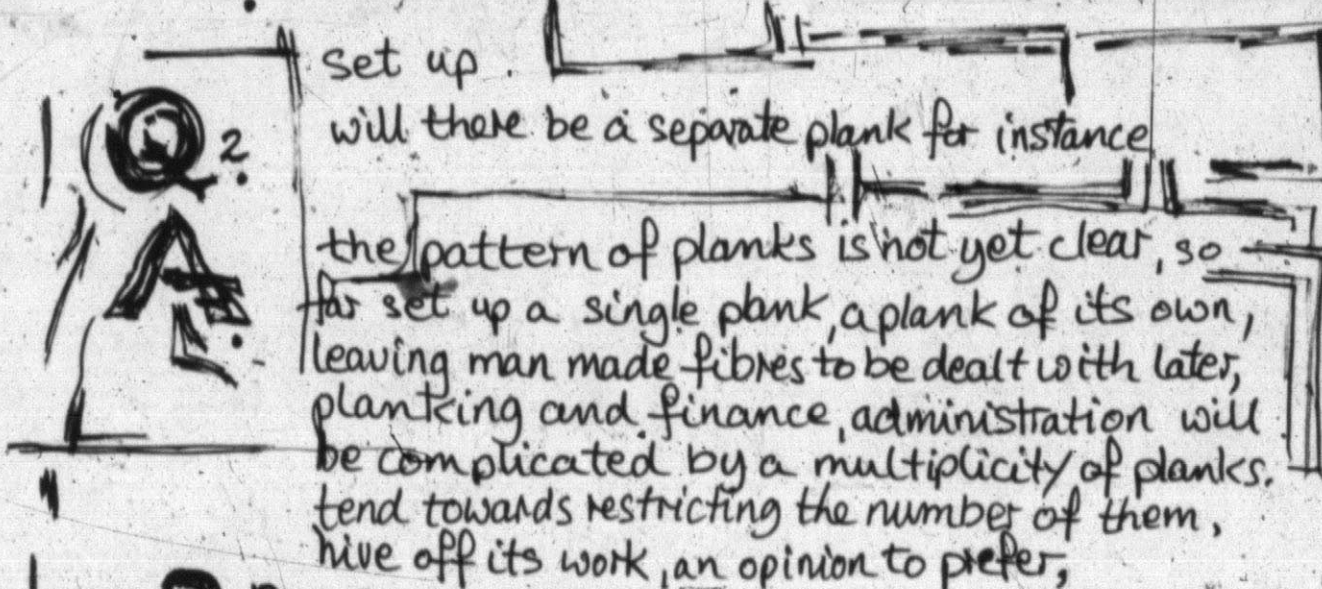 set up
Q?
will there be a separate plank for instance
A.
the pattern of planks is not yet clear, so
far set up a single plank, a plank of its own,
leaving man made fibres to be dealt with later,
planking and finance, administration will
be complicated by a multiplicity of planks.
tend towards restricting the number of them,
hive off its work, an opinion to prefer,